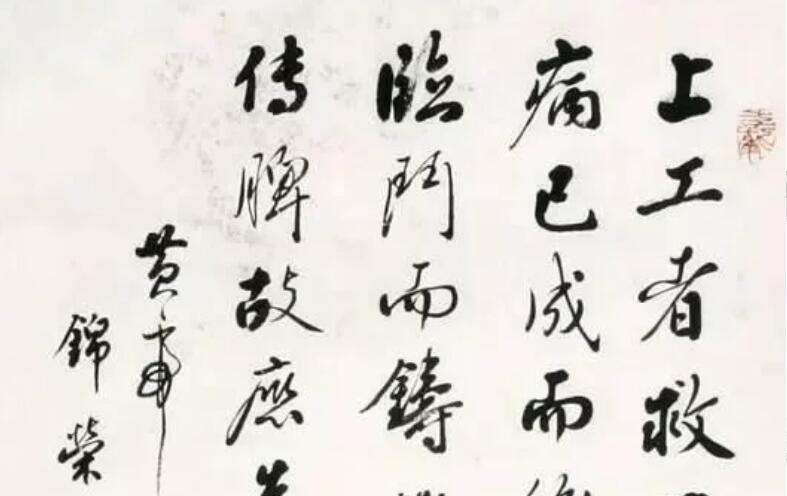 上工者救
病已成而
臨鬥而鑄
傳脾故應先
黄帝
錦榮